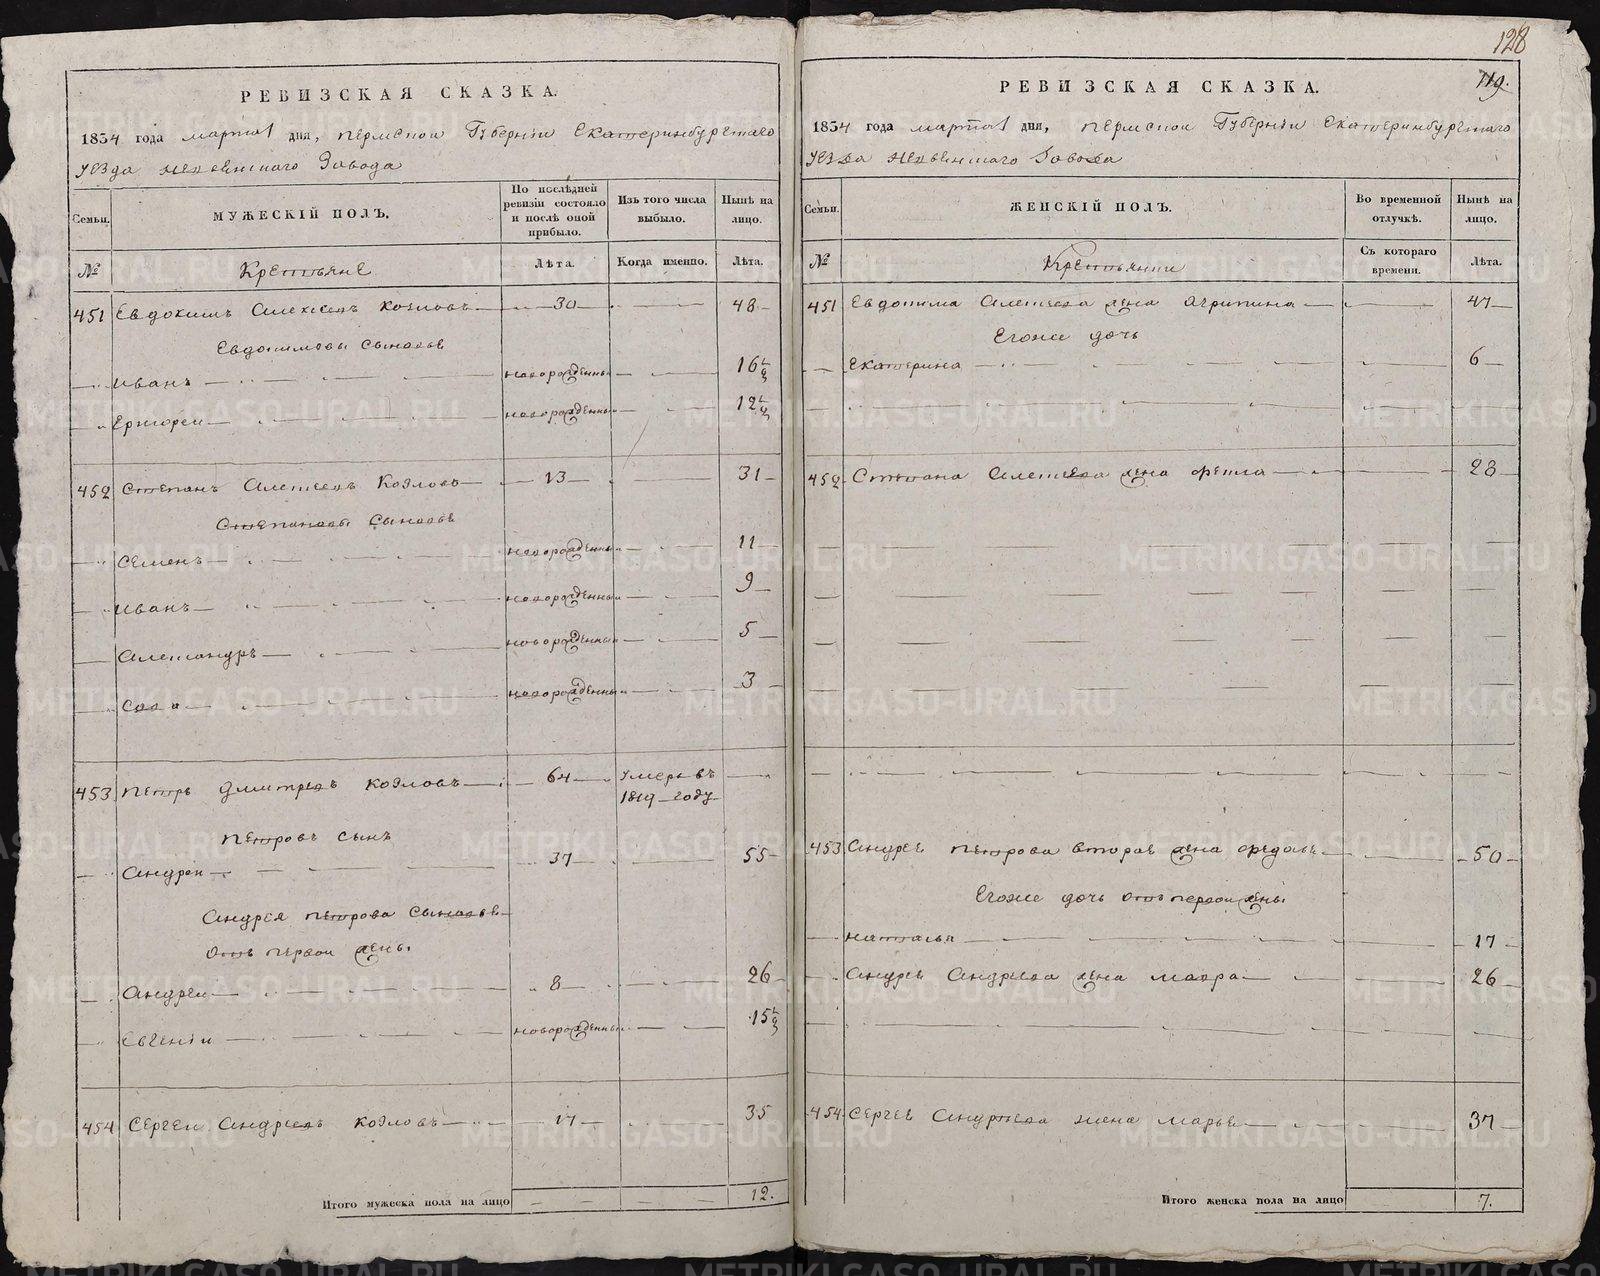 РЕВИЗСКАЯ СКАЗКА.
1834 года марта 1 дня, пермской Губерніи Екатеринбургскаго
уезда невьянскаго Завода
Семьи.
МУЖЕСКІЙ ПОЛЪ.
По послѣдней ревизіи состояло и послѣ оной прибыло.
Изъ того числа выбыло.
Нынѣ на лицо.
№
Крестьяне
Лѣта.
Когда именно.
Лѣта.
451 Евдокимъ Алексеевъ Козловъ 30 48
Евдокимовы сыновье
Иванъ новорожденный 16½
Григореи новорожденный 12½
452 Степанъ Алексеевъ Козловъ 13 31
Степановы сыновье
Семенъ новорожденный 11
Иванъ новорожденный 9
Александръ новорожденный 5
Сава новорожденный 3
453 Петръ Дмитревъ Козловъ 64 умеръ въ
1819 году
Петровъ сынъ
Андреи 37 55
Андрея петрова сыновье
отъ первои жены
Андреи 8 26
Евгеніи новорожденный 15½
454 Сергеи Андреевъ Козловъ 17 35
Итого мужеска пола на лицо 12.
128
119.
РЕВИЗСКАЯ СКАЗКА.
1834 года марта 1 дня, пермской Губерніи Екатеринбургскаго
уезда невьянскаго Завода
Семьи.
ЖЕНСКІЙ ПОЛЪ.
Во временной отлучкѣ.
Нынѣ на лицо.
№
Крестьянки
Съ котораго времени.
Лѣта.
451 Евдокима Алексеева жена Агрипина 47
Егоже дочь
Екатерина 6
452 Степана Алексеева жена Фекла 28
453 Андрея петрова вторая жена Федосья 50
Егоже дочь отъ первои жены
наталья 17
Андрея Андреева жена Мавра 26
454 Сергея Андреева жена Марья 37
Итого женска пола на лицо 7.
METRIKI.GASO-URAL.RU